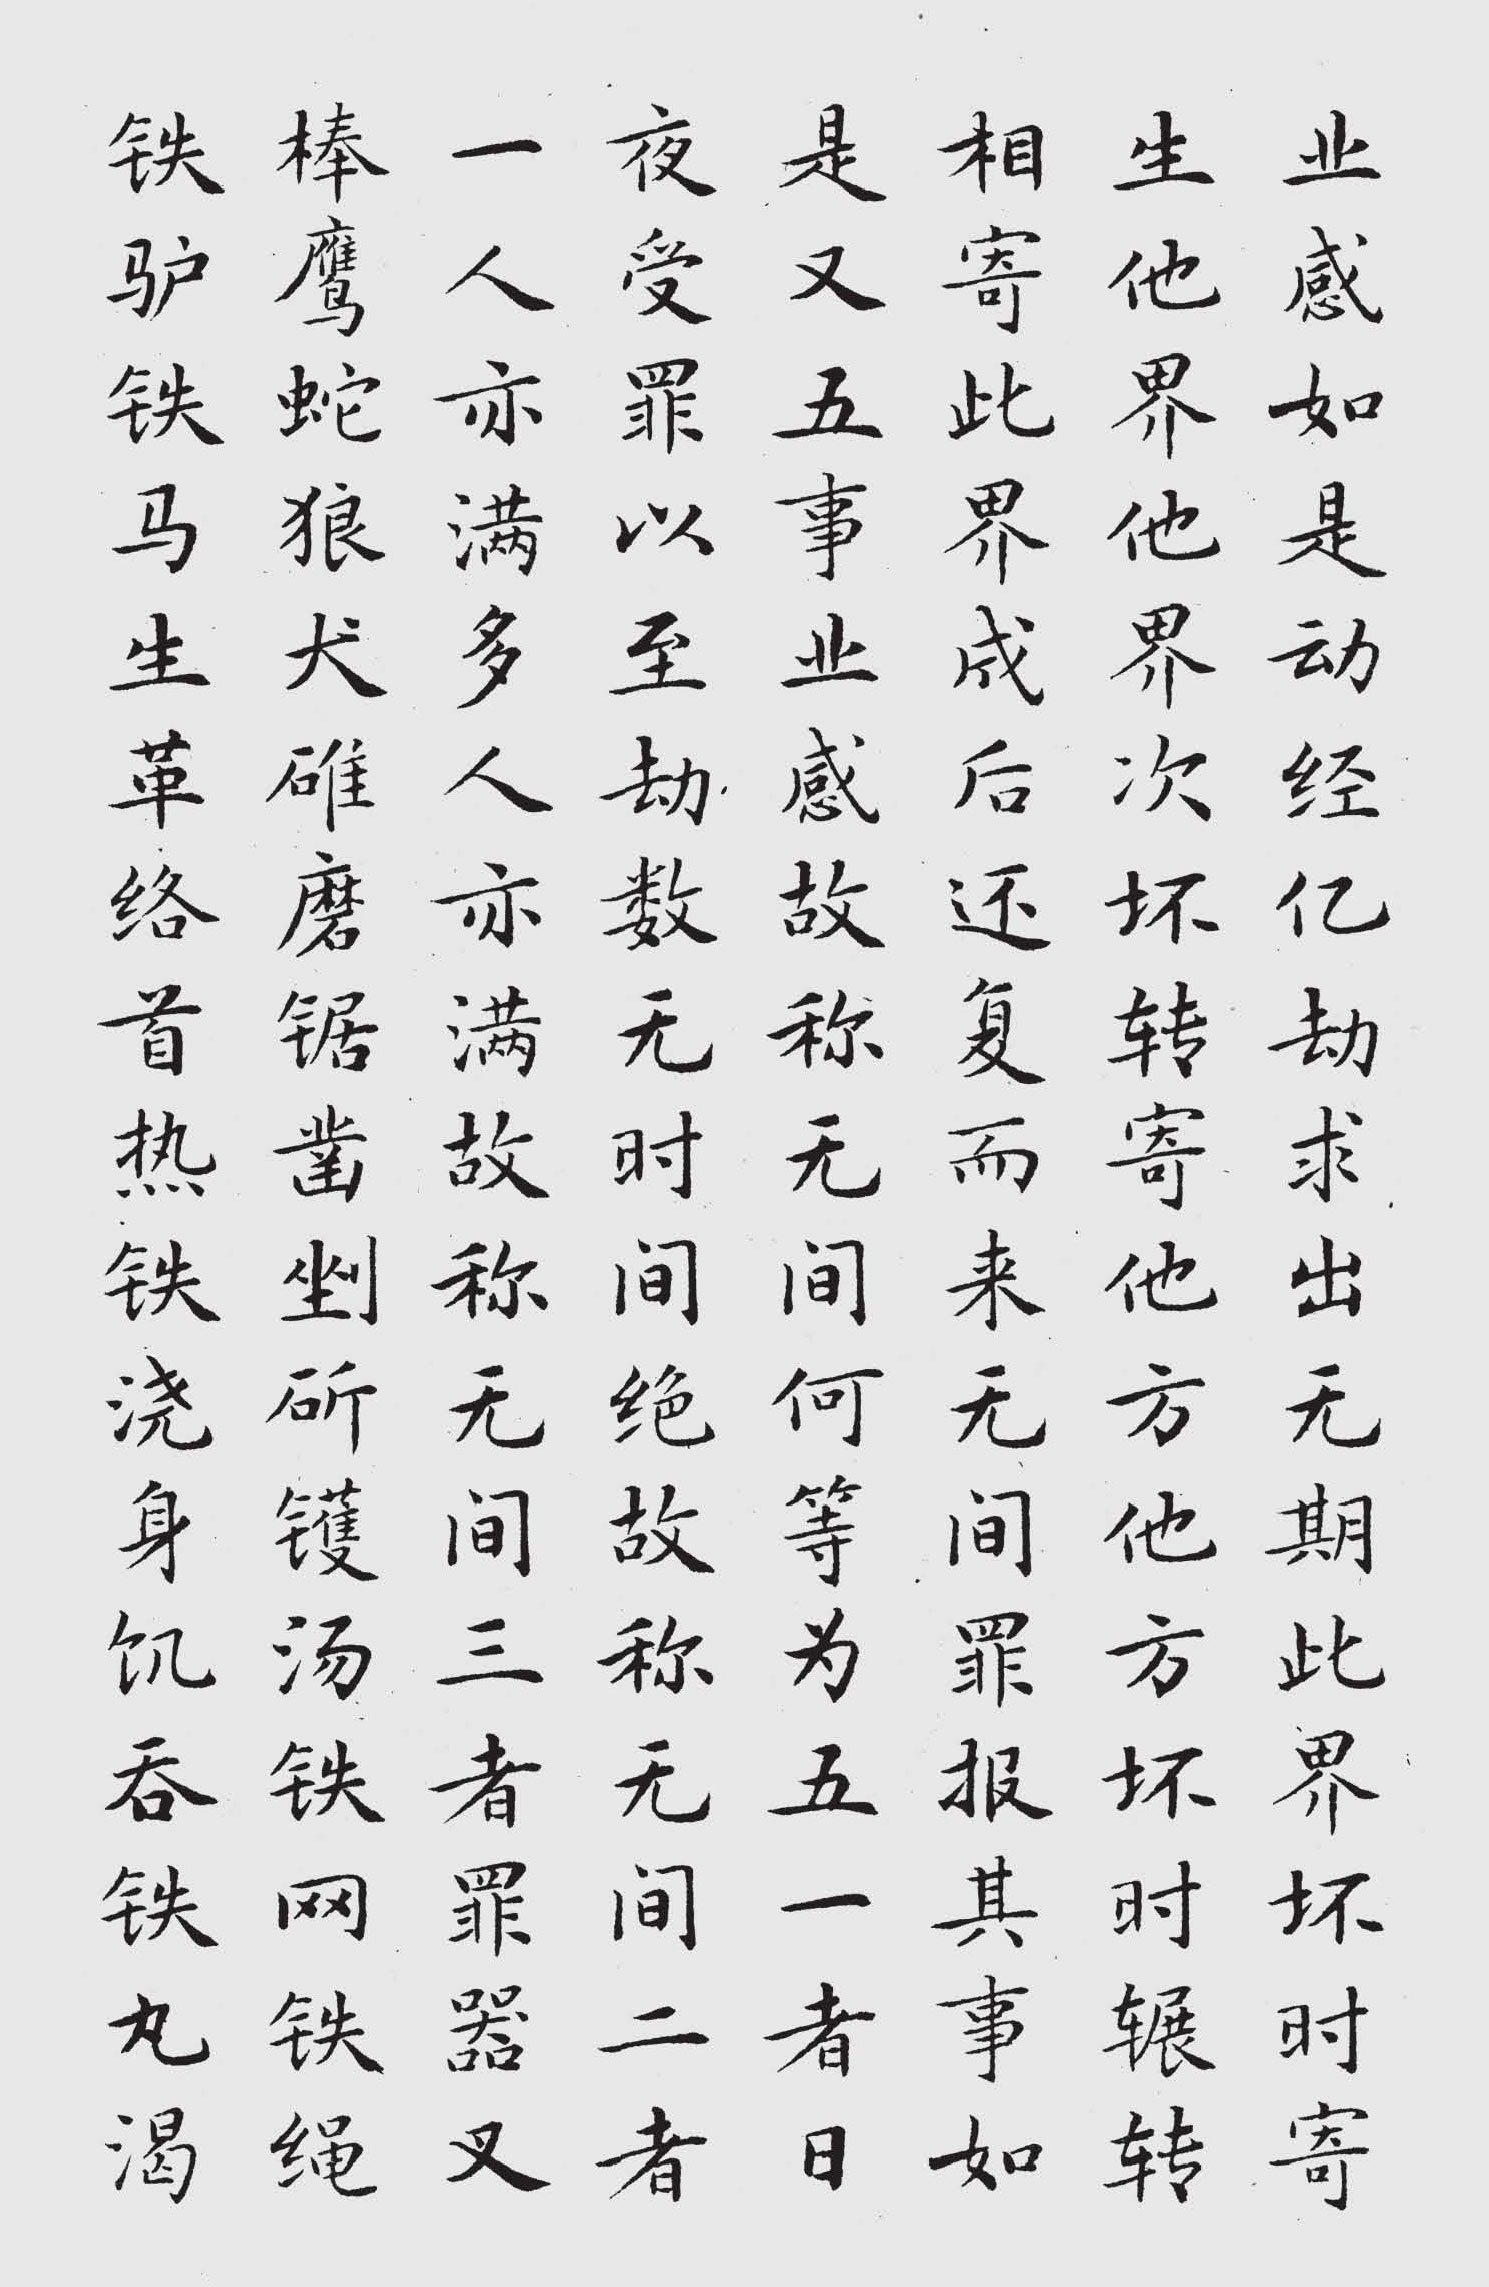 业感如是动经亿劫求出无期此界坏时寄
生他界他界次坏转寄他方他方坏时辗转
相寄此界成后还复而来无间罪报其事如
是又五事业感故称无间何等为五一者日
夜受罪以至劫数无时间绝故称无间二者
一人亦满多人亦满故称无间三者罪器叉
棒鹰蛇狼犬碓磨锯凿剉斫镬汤铁网铁绳
铁驴铁马生革络首热铁浇身饥吞铁丸渴